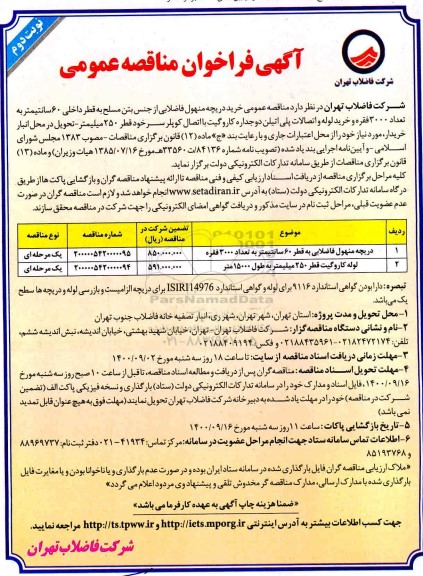 نوبت دوم
آگهی فراخوان مناقصه عمومی
شرکت فاضلاب تهران
شرکت فاضلاب تهران در نظر دارد مناقصه عمومی خرید دریچه منهول فاضلابی از جنس بتن مسلح به قطر داخلی ۶۰ سانتیمتر به
تعداد ۳۰۰۰ فقره و خرید لوله و اتصالات پلی اتیلن دوجداره کاروگیت با اتصال کوپلر خود قطر ۲۵۰ میلیمتر - تحویل در محل انبار
خریدار، مورد نیاز خود را از محل اعتبارات جاری و با رعایت بند «ج» ماده (۱۲) قانون برگزاری مناقصات - مصوب ۱۳۸۳ مجلس شورای
اسلامی - و آیین‌نامه اجرایی بند یاد شده (تصویب نامه شماره ۸۴۱۳۶/ت ۳۳۵۶۰هـ مورخ ۱۳۸۵/۰۷/۱۶ هیات وزیران) و ماده (۱۳)
قانون برگزاری مناقصات از طریق سامانه تدارکات الکترونیکی دولت برگزار نماید.
کلیه مراحل برگزاری مناقصه از دریافت اسناد ارزیابی کیفی و فنی مناقصه تا ارائه پیشنهاد مناقصه گران و بازگشایی پاکت ها از طریق
درگاه سامانه تدارکات الکترونیکی دولت (ستاد) به آدرس www.setadiran.ir انجام خواهد شد و لازم است مناقصه گران در صورت
عدم عضویت قبلی، مراحل ثبت نام در سایت مذکور و دریافت گواهی امضای الکترونیکی را جهت شرکت در مناقصه محقق سازند.
ردیف موضوع تضمین شرکت در مناقصه (ریال) شماره مناقصه نوع مناقصه
۱ دریچه منهول فاضلابی به قطر ۶۰ سانتیمتر به تعداد ۳۰۰۰ فقره ۸۵۰.۰۰۰.۰۰۰ ۲۰۰۰۰۰۵۴۲۰۰۰۰۹۵ یک مرحله ای
۲ لوله کاروگیت قطر ۲۵۰ میلیمتر به طول ۱۵۰۰۰ متر ۵۹۱.۰۰۰.۰۰۰ ۲۰۰۰۰۰۵۴۲۰۰۰۰۹۴ یک مرحله ای
تبصره: دارا بودن گواهی استاندارد ۹۱۱۶ برای لوله و گواهی استاندارد ISIRI14976 برای دریچه الزامیست و بازرسی لوله و دریچه ها سطح
یک می‌باشد.
۱- محل تحویل و مدت پروژه: استان تهران، شهر تهران، شهر ری، انبار تصفیه خانه فاضلاب جنوب تهران
۲- نام و نشانی دستگاه مناقصه گزار: شرکت فاضلاب تهران - تهران، خیابان شهید بهشتی، خیابان اندیشه، نبش اندیشه ششم،
تلفن: ۰۲۱۸۲۴۷۲۱۷۴-۰۲۱۸۸۴۳۵۹۶۱ و فکس: ۰۲۱۸۸۴۰۹۱۹۴
۳- مهلت زمانی دریافت اسناد مناقصه از سایت: تا ساعت ۱۸ روز سه شنبه مورخ ۱۴۰۰/۰۹/۰۲
۴- مهلت تحویل اسناد مناقصه: مناقصه گران پس از دریافت و مطالعه اسناد مناقصه، تا قبل از ساعت ۱۰ صبح روز سه شنبه مورخ
۱۴۰۰/۰۹/۱۶، فایل اسناد و مدارک خود را در سامانه تدارکات الکترونیکی دولت (ستاد) بارگذاری و نسخه فیزیکی پاکت الف (تضمین
شرکت در مناقصه) خود را در مهلت یاد شده به دبیرخانه شرکت فاضلاب تهران تحویل نمایند (مهلت فوق به هیچ عنوان قابل تمدید
نمی باشد)
۵- تاریخ بازگشایی پاکات: ساعت ۱۱ روز سه شنبه مورخ ۱۴۰۰/۰۹/۱۶
۶- اطلاعات تماس سامانه ستاد جهت انجام مراحل عضویت در سامانه: مرکز تماس: ۴۱۹۳۴-۰۲۱ دفتر ثبت نام: ۸۸۹۶۹۷۳۷
و ۸۵۱۹۳۷۶۸
«ملاک ارزیابی مناقصه گران فایل بارگذاری شده در سامانه ستاد ایران بوده و در صورت عدم بارگذاری و یا ناخوانا بودن و یا مغایرت فایل
بارگذاری شده با مدارک ارسالی، مدارک مناقصه گر مخدوش تلقی و پیشنهاد وی مردود اعلام می گردد»
«ضمنا هزینه چاپ آگهی به عهده کارفرما می باشد»
جهت کسب اطلاعات بیشتر به آدرس اینترنتی http://iets.mporg.ir و http://ts.tpww.ir مراجعه نمایید.
شرکت فاضلاب تهران
ParsNamadData